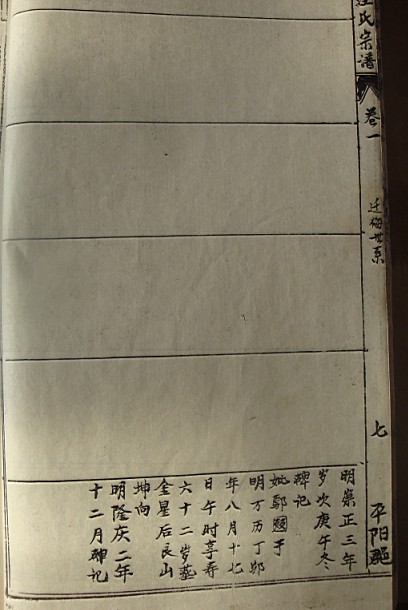 汪氏宗谱
卷一
世系
七
平阳
明崇正三年
岁次庚午冬
碑记
妣 于
明万历丁卯
年八月十七
日午时享寿
六十二岁葬
金星后艮山
坤向
明隆庆二年
十二月碑记